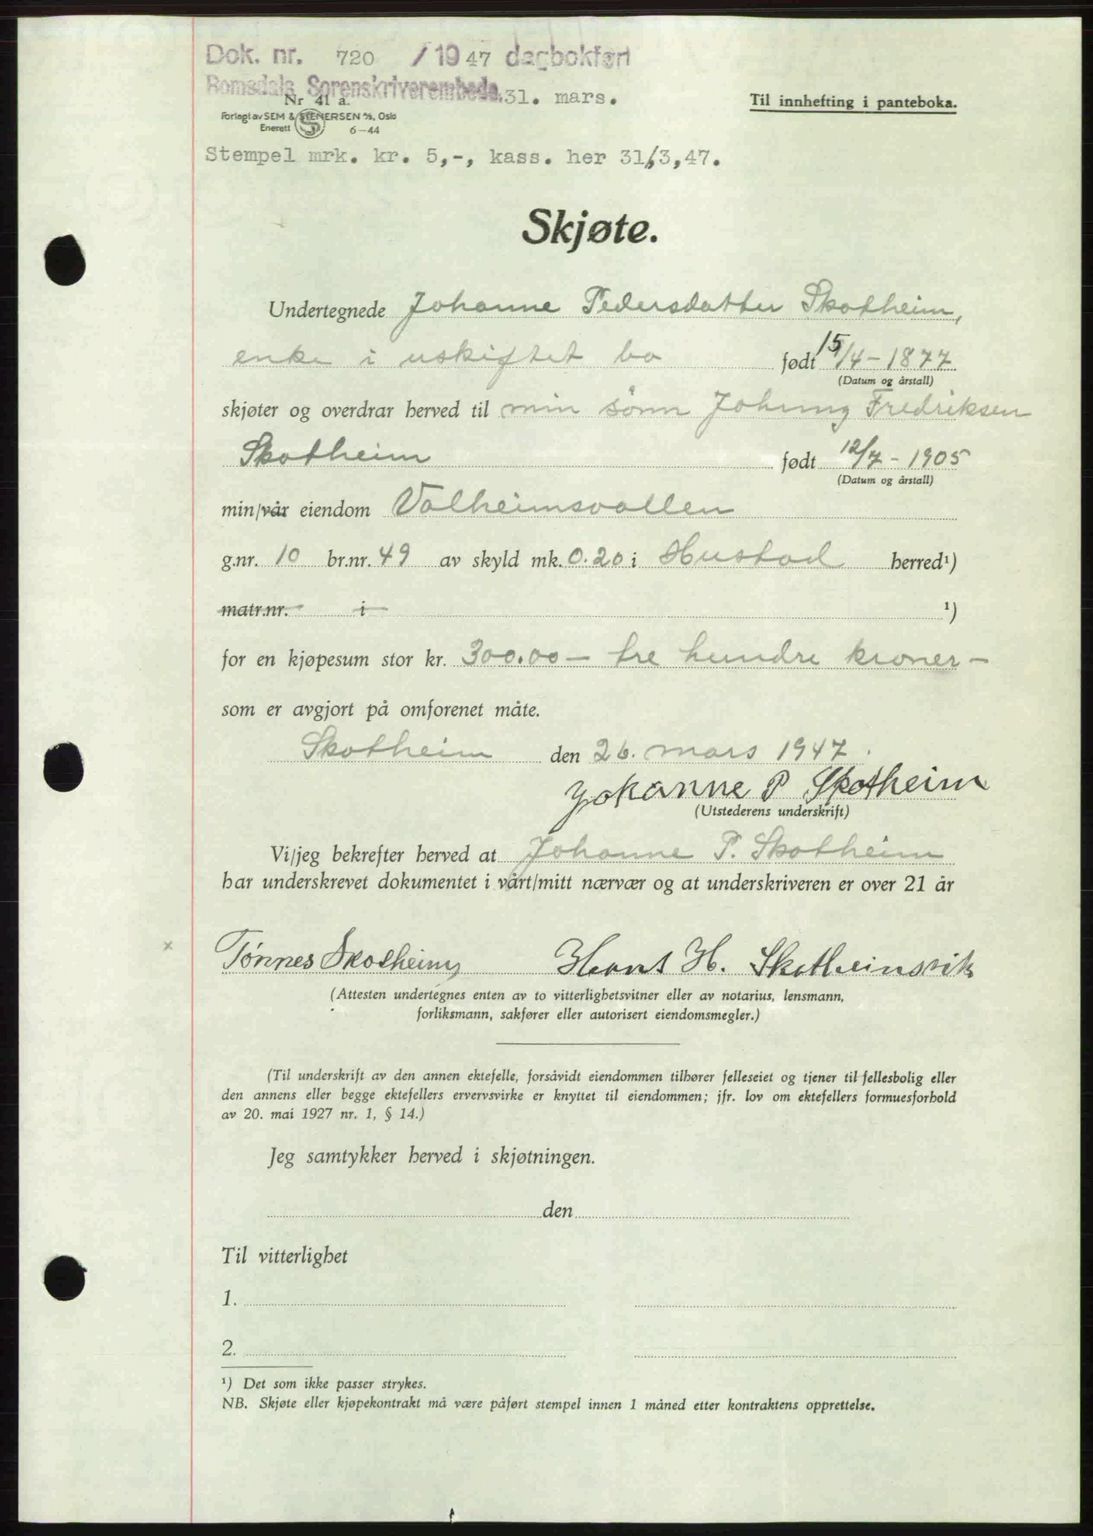 Dok. nr. 720 /1947 dagbokført
Romsdals Sorenskriverembede. 31. mars.
Nr 41 a.
Til innhefting i panteboka.
Forlagt av SEM & STENERSEN A/S, Oslo
Enerett 6-44
Stempel mrk. kr. 5,-, kass. her 31/3,47.
Skjøte.
Undertegnede Johanne Pedersdatter Skotheim,
enke i uskiftet bo født 15/4-1877
(Datum og årstall)
skjøter og overdrar herved til min sönn Johnny Fredriksen
Skotheim født 12/7-1905
(Datum og årstall)
min/vår eiendom Valheimsvollen
g.nr. 10 br.nr. 49 av skyld mk. 0.20 i Hustad herred¹)
matr.nr. i ¹)
for en kjøpesum stor kr. 300.00 — tre hundre kroner —
som er avgjort på omforenet måte.
Skotheim den 26. mars 1947.
Johanne P Skotheim
(Utstederens underskrift)
Vi/jeg bekrefter herved at Johanne P. Skotheim
har underskrevet dokumentet i vårt/mitt nærvær og at underskriveren er over 21 år
x
Tønnes Skotheim Hans H. Skotheimsvik
(Attesten undertegnes enten av to vitterlighetsvitner eller av notarius, lensmann,
forliksmann, sakfører eller autorisert eiendomsmegler.)
(Til underskrift av den annen ektefelle, forsåvidt eiendommen tilhører felleseiet og tjener til fellesbolig eller
den annens eller begge ektefellers ervervsvirke er knyttet til eiendommen; jfr. lov om ektefellers formuesforhold
av 20. mai 1927 nr. 1, § 14.)
Jeg samtykker herved i skjøtningen.
den
Til vitterlighet
1.
2.
¹) Det som ikke passer strykes.
NB. Skjøte eller kjøpekontrakt må være påført stempel innen 1 måned etter kontraktens opprettelse.